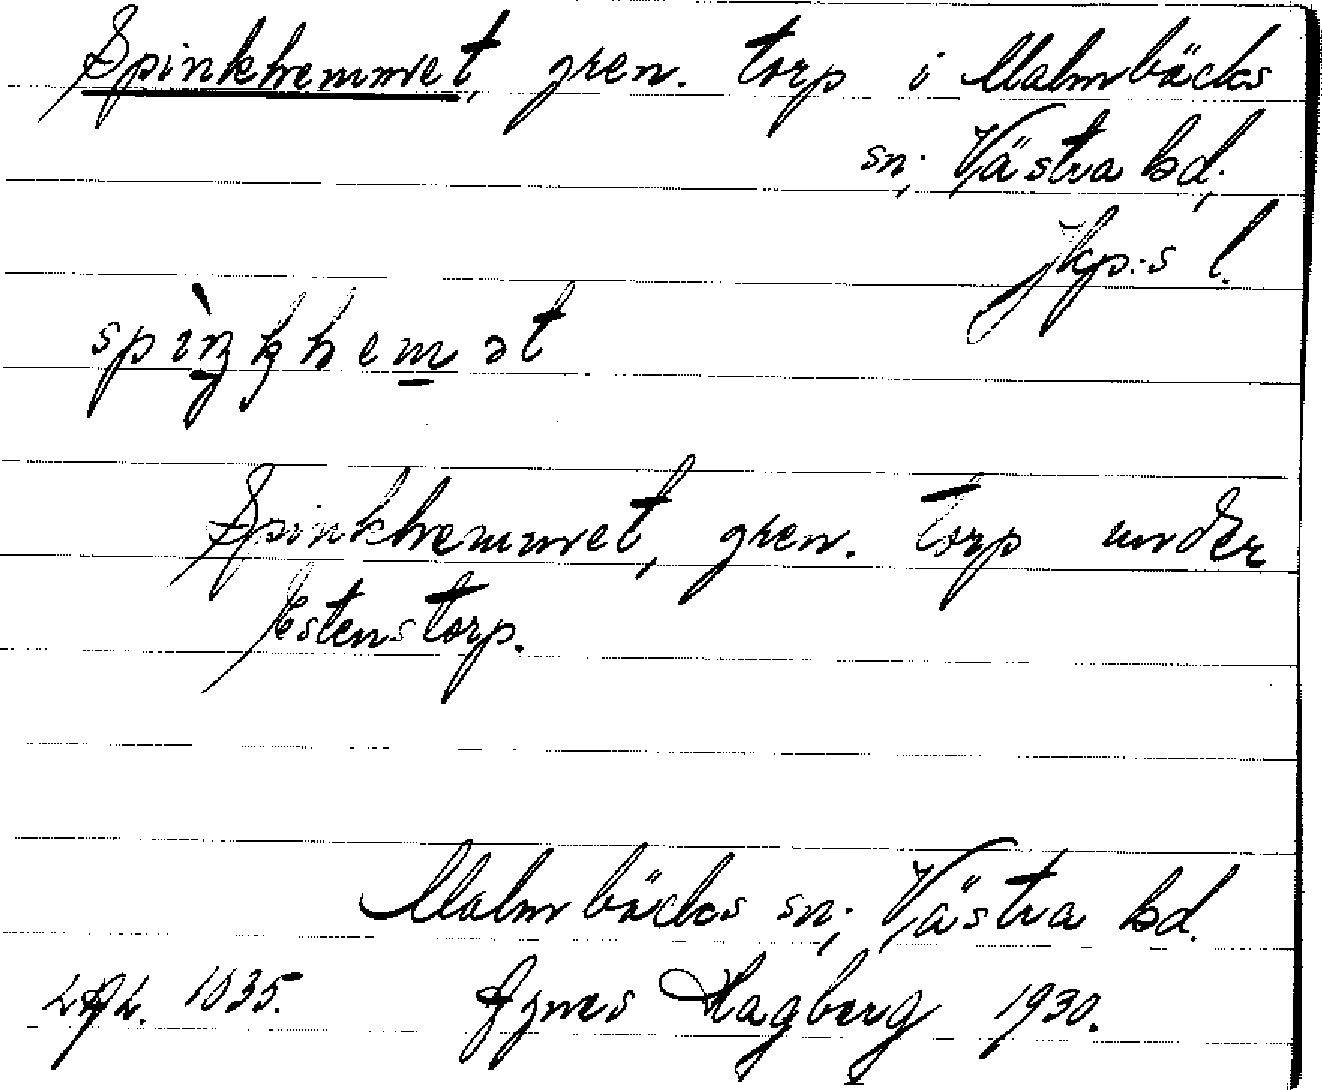 Spinkhemmet, gren. torp i Malmbäcks
sn; Västra hd,
Jkp:s l.
spìŋkhem̲ət
Spinkhemmet, gren. torp under
Estenstorp.
Malmbäcks sn; Västra hd.
1035. Agnes Hagberg 1930.